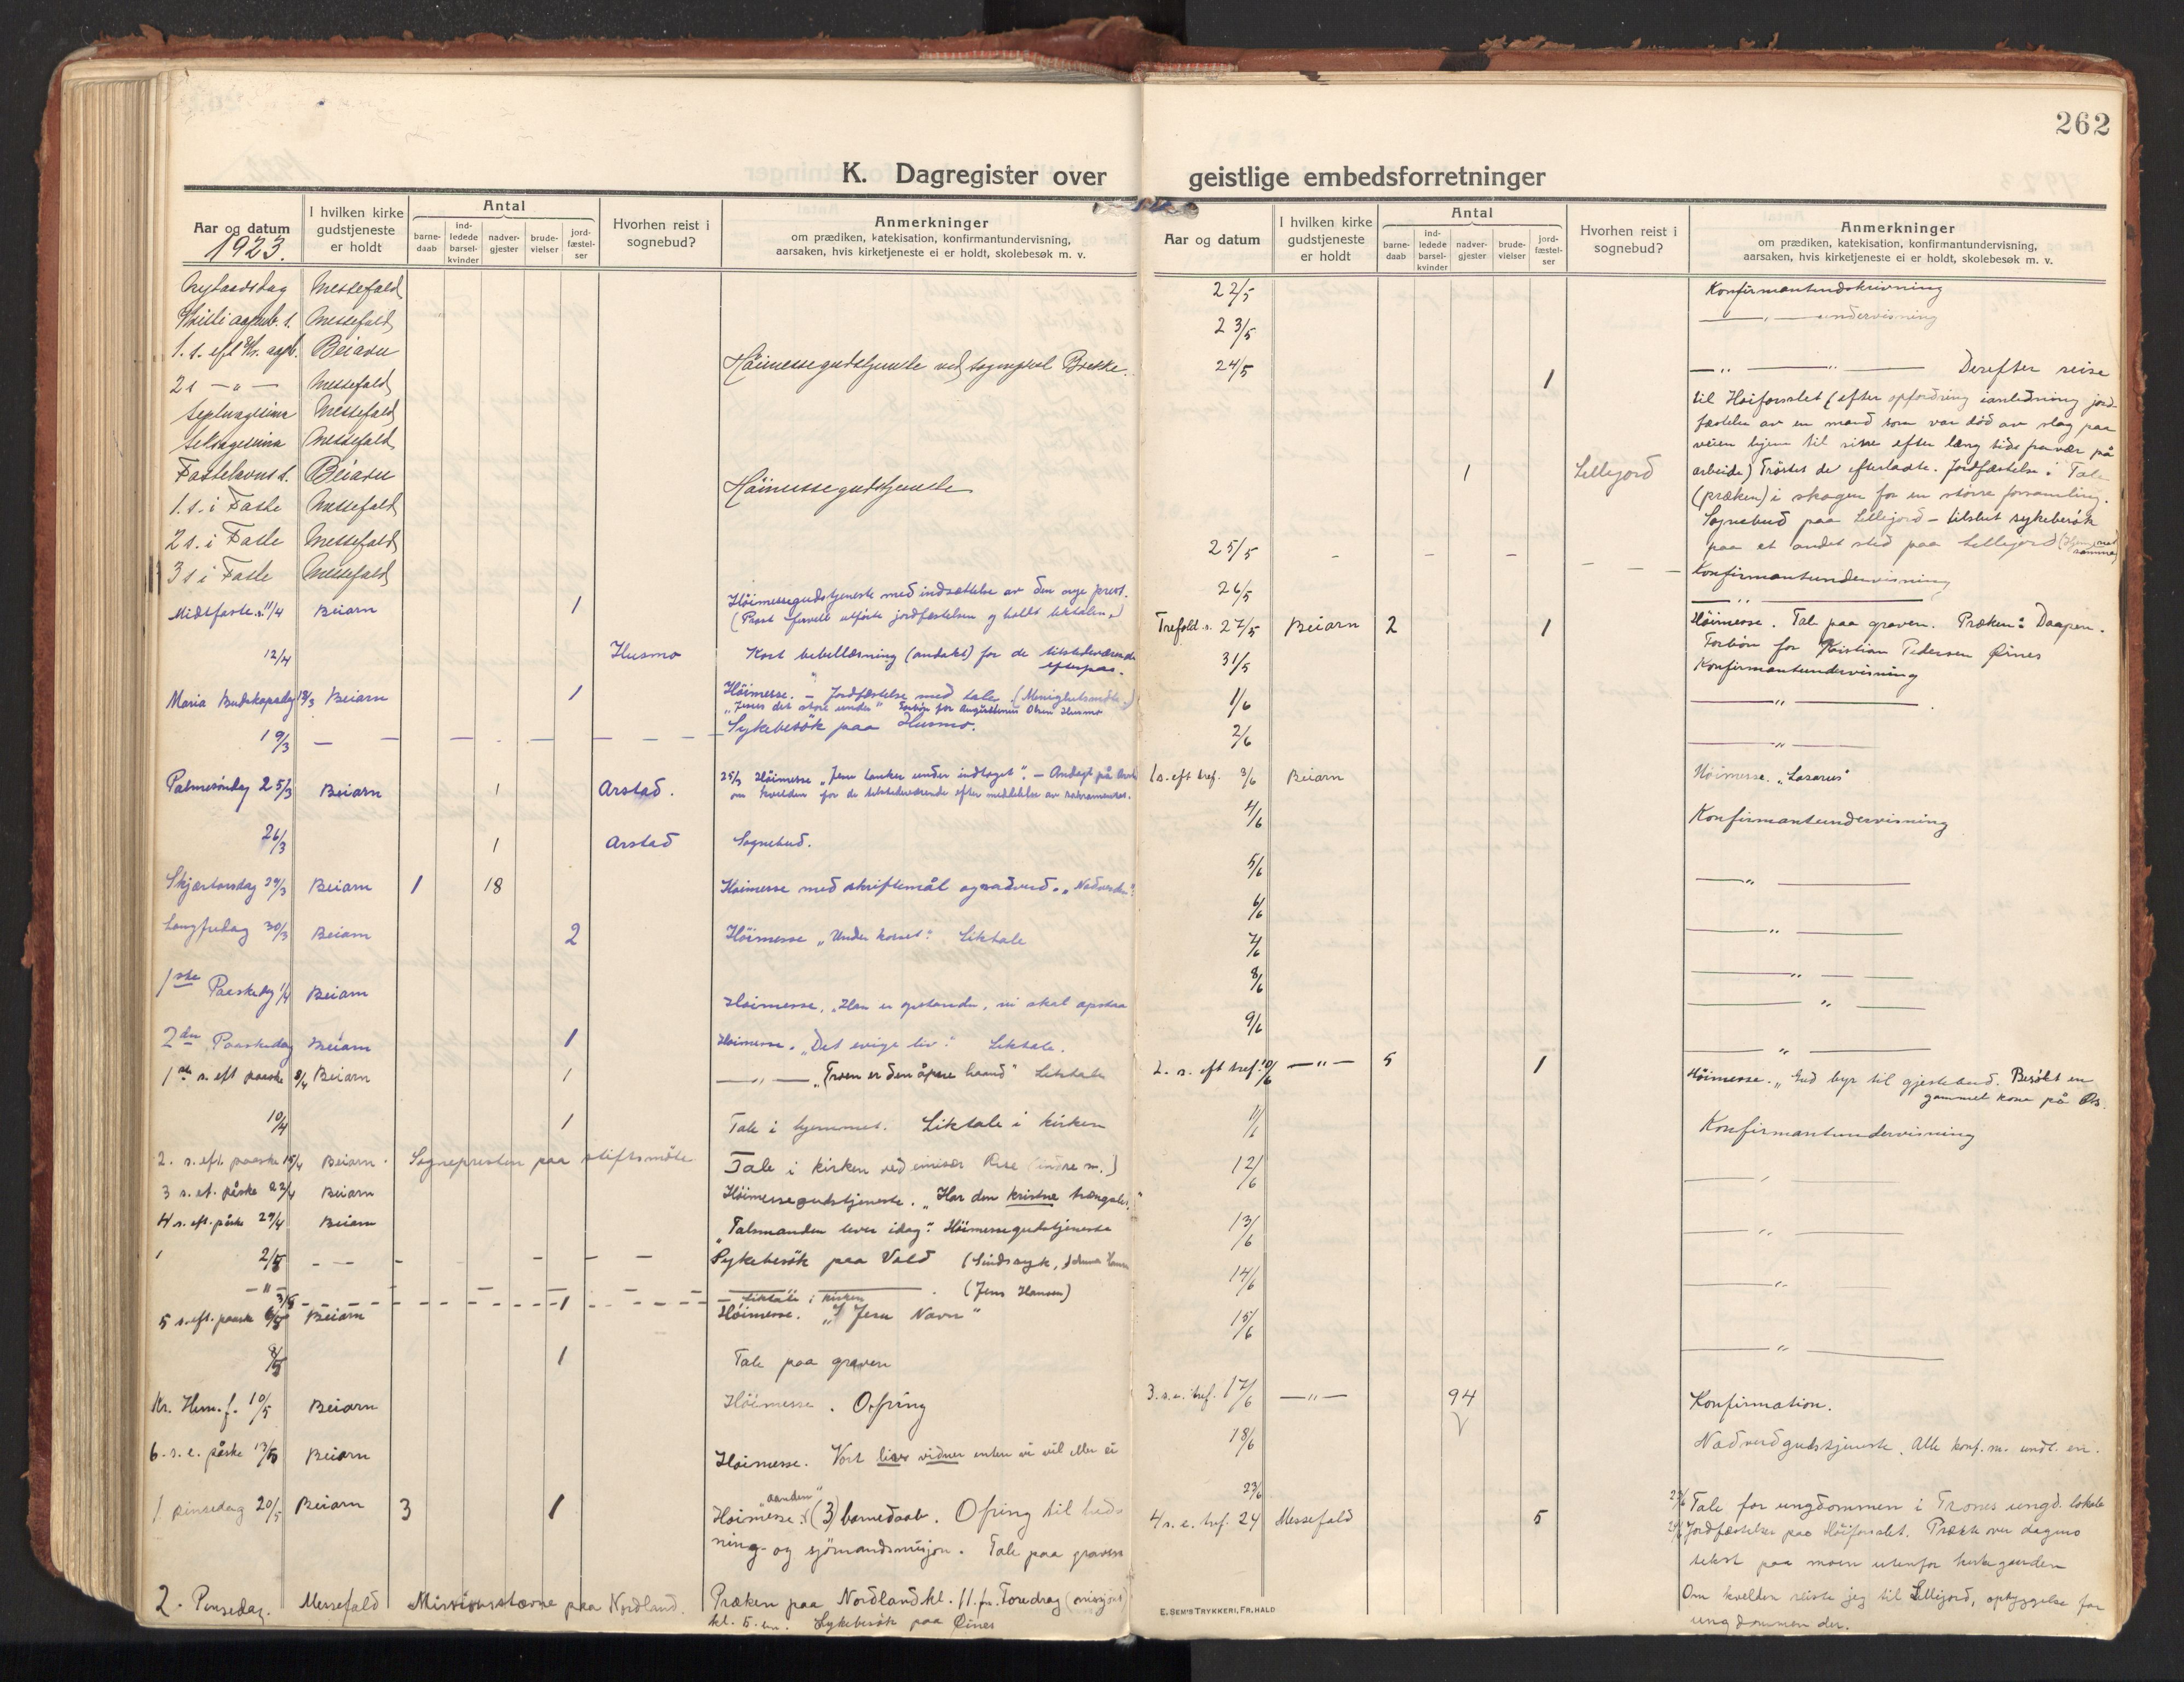 262
K. Dagregister over geistlige embedsforretninger
Aar og datum
1923.
I hvilken kirke gudstjeneste er holdt
Antal
barne-daab
ind-ledede barsel-kvinder
nadver-gjester
brude-vielser
jord-fæstel-ser
Hvorhen reist i sognebud?
Anmerkninger
om prædiken, katekisation, konfirmantundervisning,
aarsaken, hvis kirketjeneste ei er holdt, skolebesøk m. v.
Nytaarsdag Messefald
Messefald
1. s. eft Beiarn Høimessegudstjeneste ved sogneprest Brekke.
2 s — " — Messefald
Septuagesima Messefald
Seksagesima Messefald
Fastelavns s. Beiarn Høimessegudstjeneste
1. s. i Faste Messefald
2 s. i Faste Messefald
3 s i Faste Messefald
Midtfaste s. 11/4 Beiarn 1 Høimessegudstjeneste med indsættelse av den nye prest.
(Prost utførte jordfæstelsen og holdt liktalen.)
12/4 Husmo Kort bibellæsning (andakt) for de tilstedeværende
efterpaa.
Maria Budskapsdag 18/3 Beiarn 1 Høimesse. – Jordfæstelse med tale. (Menighetsmøte.)
"Jesus det store under" Forbøn for Olsen Husmo
19/3 — — — — — — Sykebesøk paa Husmo.
Palmesøndag 25/3 Beiarn 1 Arstad. 25/3 Høimesse "Jesu tanker under indtoget". – Andagt på
om kvelden for de tilstedeværende efter meddelelse av sakramentet.
26/3 1 Arstad Sognebud.
Skjærtorsdag 29/3 Beiarn 1 18 Høimesse med skriftemål og nadverd. "Nadverden".
Langfredag 30/3 Beiarn 2 Høimesse "Under korset". Liktale
1ste Paaskedag 1/4 Beiarn Høimesse, "Han er opstanden, vi skal opstaa
2den Paaskedag Beiarn 1 Høimesse. "Det evige liv". Liktale.
1ste s. eft paaske 8/4 Beiarn 1 — " — "Troen er den åpne haand" Liktale
10/4 1 Tale i hjemmet. Liktale i kirken
2. s. eft. paaske 15/4 Beiarn. Sognepresten paa stiftsmöte Tale i kirken ved emissær (indre m.)
3 s. ef. påske 22/4 Beiarn Høimessegudstjeneste. "Har den kristne trængsler."
4 s. eft. påske 29/4 Beiarn "Talsmanden lever idag". Høimessegudstjeneste
2/5 - - - - - - Sykebesøk paa Vold (Sindssyk,
— " — — — — — (Jens Hansen)
3/5 - - - - 1 - - - Liktale i kirken
5 s. eft. paaske 6/5 Beiarn Høimesse. "I Jesu Navn"
8/5 1 Tale paa graven
Kr. Him. f. 10/5 Beiarn Høimesse. Ofring
6. s. e. påske 13/5 Beiarn Høimesse. Vort liv vidner enten vi vil eller ei
1 pinsedag 20/5 Beiarn 3 1 Høimesse: "aanden" (3) barnedaab. Ofring til hed-
ning- og sjömandsmisjon. Tale paa graven
2. Pinsedag. Messefald Missionsstævne paa Nordland. Præken paa Nordland kl. 11. fm. Foredrag (misjons)
kl. 5. em. Sykebesøk paa Øines
Aar og datum
I hvilken kirke gudstjeneste er holdt
Antal
barne-daab
ind-ledede barsel-kvinder
nadver-gjester
brude-vielser
jord-fæstel-ser
Hvorhen reist i sognebud?
Anmerkninger
om prædiken, katekisation, konfirmantundervisning,
aarsaken, hvis kirketjeneste ei er holdt, skolebesøk m. v.
22/5 Konfirmantindskrivning
23/5 — " — undervisning
24/5 1 — " — " — Derefter reise
til Høiforslet (efter opfordring i anledning jord-
fæstelse av en mand som var død av slag paa
veien hjem til sine efter lang tids fravær på
arbeide) Trøstet de efterladte. Jordfæstelse. Tale
1 Lillejord (præken) i skogen for en större forsamling.
Sognebud paa Lillejord – tilslut sykebesök
paa et andet sted paa Lillejord
25/5 - - - - - - Konfirmantundervisning
26/5 — " —
Trefold. s. 27/5 Beiarn 2 1 Høimesse. Tale paa graven. Præken: Daapen.
Forbøn for Kristian Pedersen Øines
31/5 Konfirmantundervisning
1/6 — " —
2/6 — " —
1 s. eft tref. 3/6 Beiarn Høimesse. "Lasarus"
4/6 Konfirmantundervisning
5/6 — " —
6/6 — " —
7/6 — " —
8/6 — " —
9/6 — " —
2. s. eft tref. 10/6 — " — 5 1 Høimesse. "Gud byr til gjestebud. Besökt en
gammel kone på
11/6 Konfirmantundervisning
12/6 — " —
13/6 — " —
14/6 — " —
15/6 — " —
3. s. e. tref. 17/6 — " — 94 Konfirmation.
18/6 Nadverdgudstjeneste. Alle konf. m. undt. en.
23/6 23/6 Tale for ungdommen i Trones ungd. lokale
4 s. e. tref. 24 Messefald 5 24/6 Jordfæstelser paa Høiforslet. Præken over dagens
tekst paa moen utenfor
Om kvelden reiste jeg til Lillejord, opbyggelse for
ungdommen der.
E. SEM'S TRYKKERI, FR.HALD